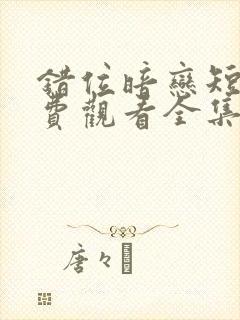 錯位暗戀短
費觀看全集
唐々